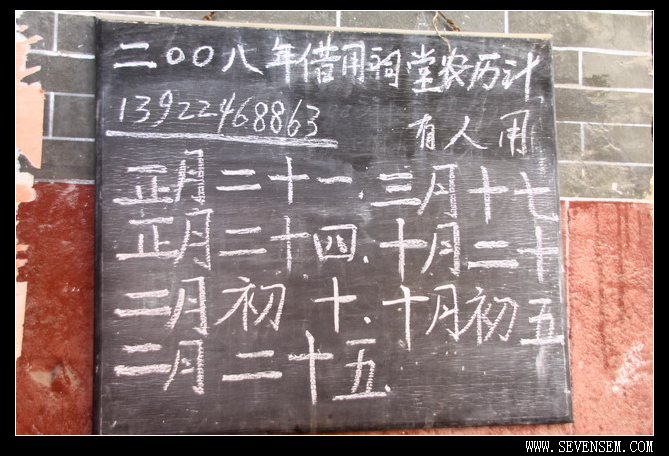 二〇〇八年借用祠堂农历计
13922468863 有人用
正月二十一.三月十七
正月二十四.十月二十
二月初十.十月初五
二月二十五.
WWW.SEVENSEM.COM